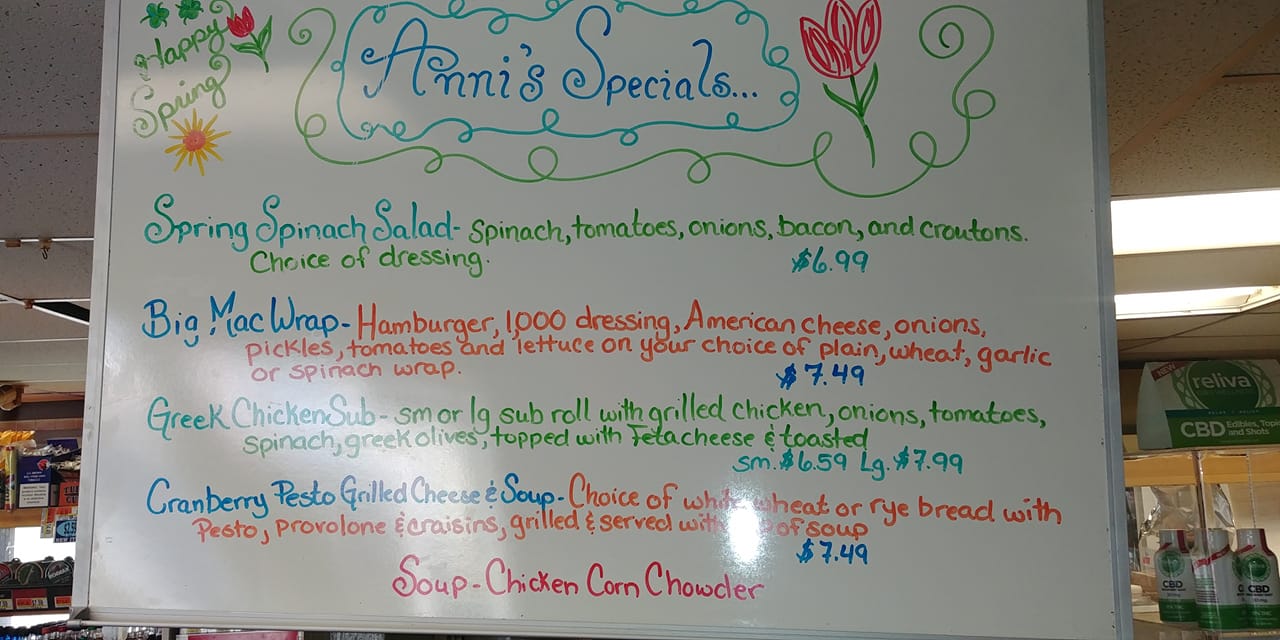 Happy
Spring
Anni's Specials...
Spring Spinach Salad- Spinach, tomatoes, onions, bacon, and croutons.
Choice of dressing.
$6.99
Big Mac Wrap- Hamburger, 1,000 dressing, American cheese, onions,
pickles, tomatoes and lettuce on your choice of plain, wheat, garlic
or spinach wrap.
$7.49
Greek Chicken Sub- sm or lg sub roll with grilled chicken, onions, tomatoes,
spinach, greek olives, topped with feta cheese & toasted
sm. $6.59 Lg. $7.99
Cranberry Pesto Grilled Cheese & Soup- Choice of white wheat or rye bread with
Pesto, provolone & craisins, grilled & served with of soup
$7.49
Soup- Chicken Corn Chowder
NEW
reliva
CBD Edibles,
and Shots
CBD
CBD